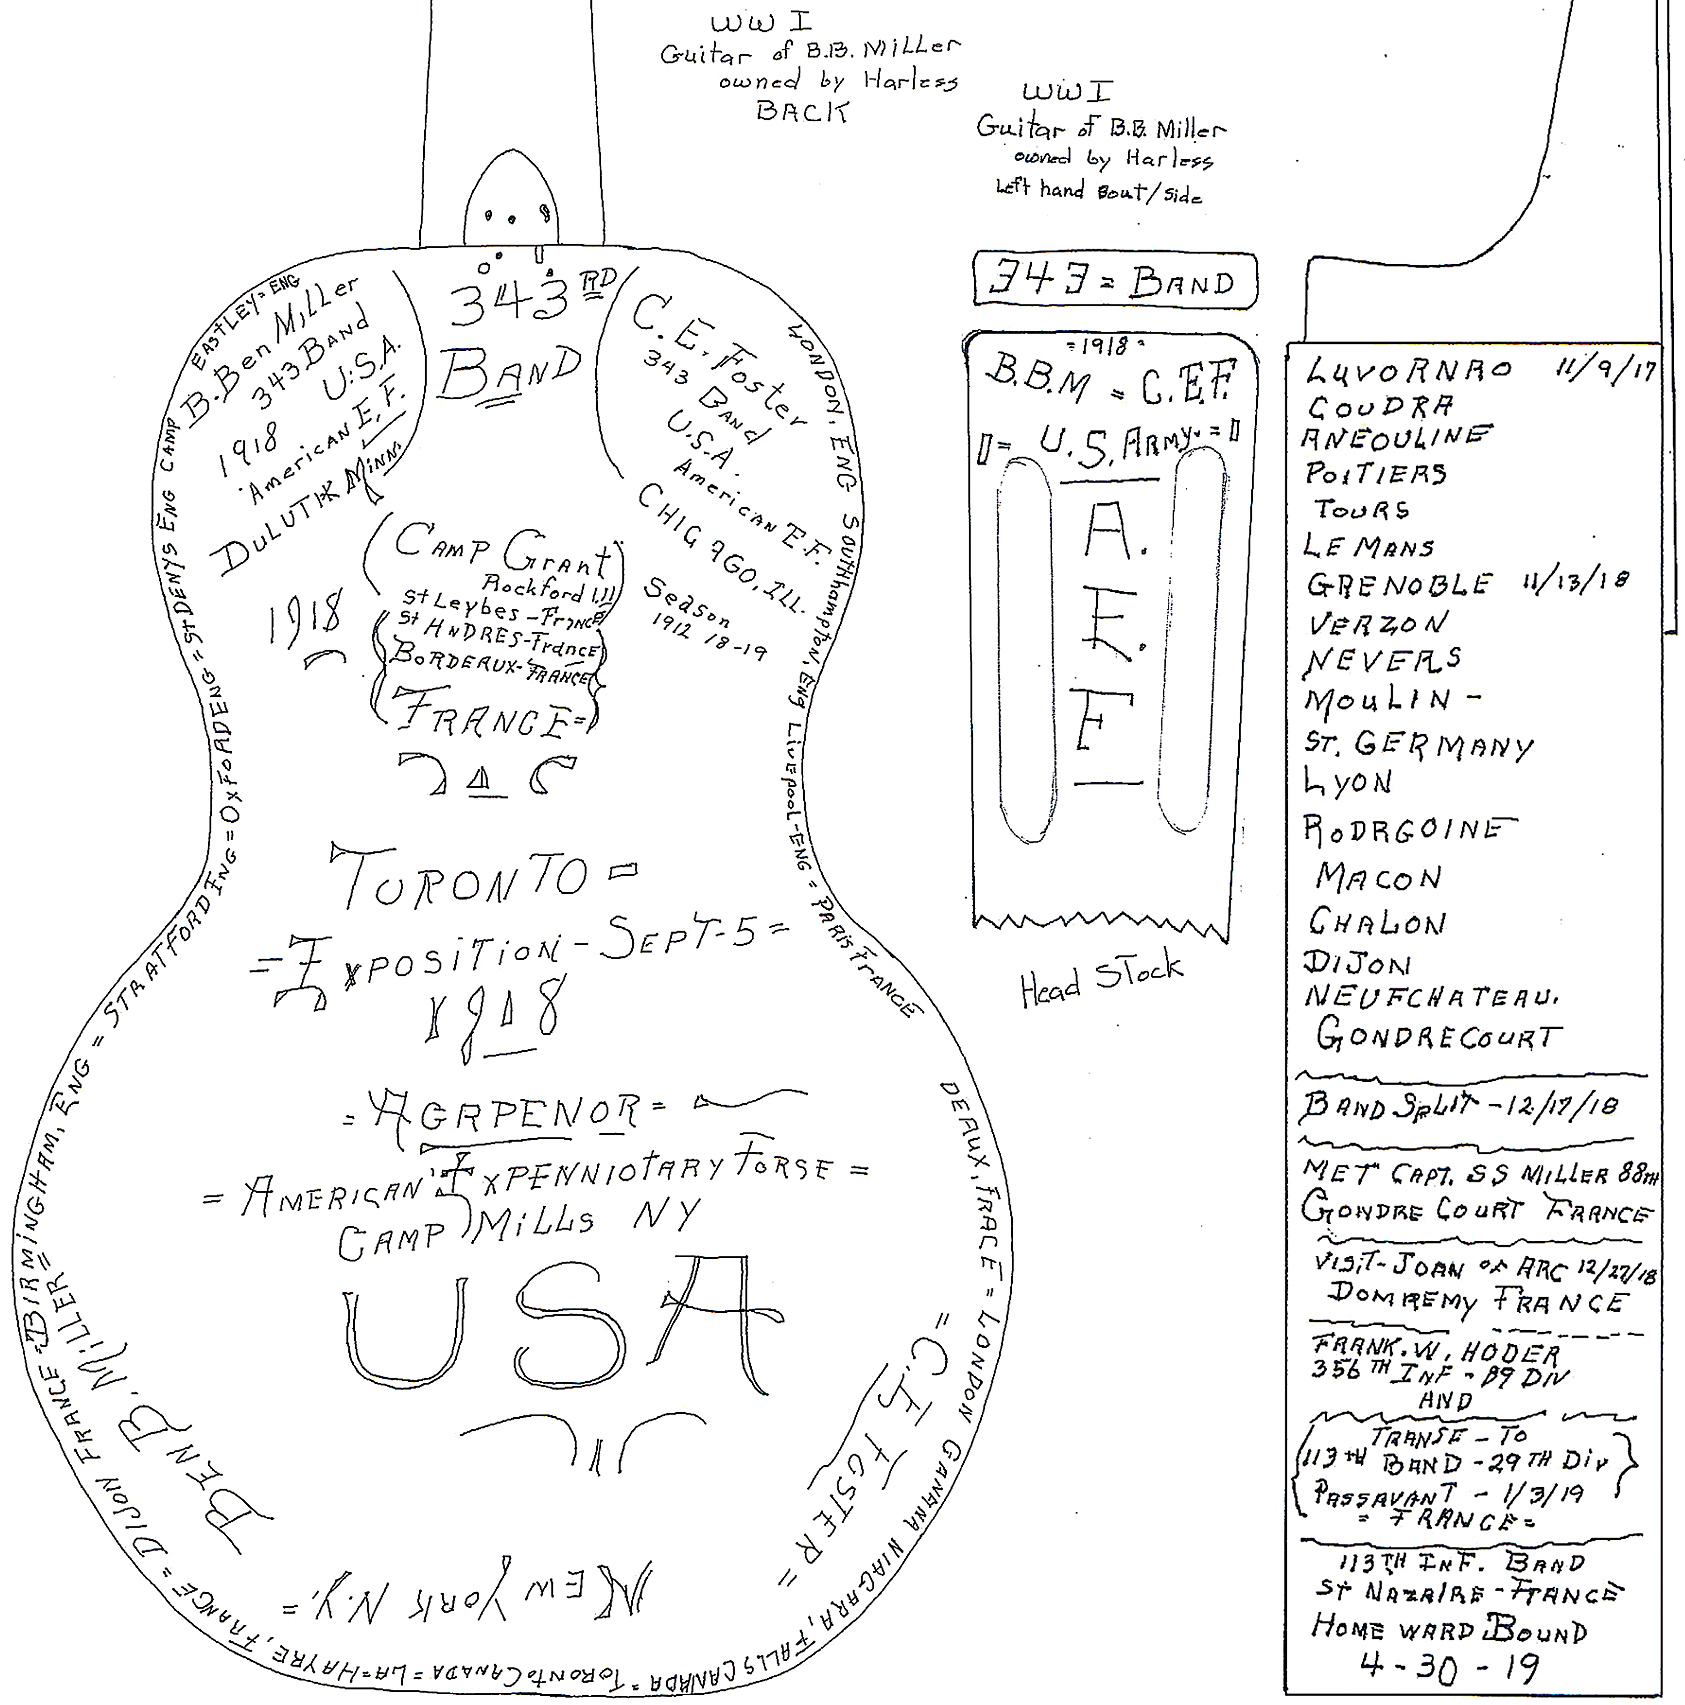 WW I
Guitar of B.B. Miller
owned by Harless
BACK
WWI
Guitar of B.B. Miller
owned by Harless
Left hand Bout/side
343RD
BAND
B. Ben Miller
343 Band
U.S.A.
1918
American E.F.
DULUTH Minn.
C.E. Foster
343 Band
U.S.A.
American E.F.
CHICAGO, ILL.
Season
1912 18-19
1918
CAMP Grant
Rockford Ill
St Leybes - France
St ANDRES - France
BORDEAUX - FRANCE
FRANCE =
TORONTO =
= EXPOSITION - SEPT - 5 =
1918
= AGAPENOR =
= AMERICAN EXPENNIOTARY FORSE =
CAMP MILLS NY
USA
BEN B. MILLER =
= C. E. FOSTER =
NEW YORK N.Y. =
EASTLEY = ENG
CAMP
ST. DENYS ENG
= OXFORD ENG =
= STRATFORD ENG =
= BIRMINGHAM, ENG =
= DIJON FRANCE =
LA = HAYRE, FRANCE =
TORONTO CANADA =
NIAGARA, FALLS CANADA =
LONDON CANANA
DEAUX, FRACE =
LONDON, ENG SOUTHampton, Eng LIVEPOOL-ENG = PARIS FRANCE
343 = BAND
= 1918 =
B.B.M = C.E.F.
= U.S. ARMY. =
A.
E.
F
Head Stock
LUVORNAO 11/9/17
COUDRA
ANEOULINE
POITIERS
TOURS
LE MANS
GRENOBLE 11/13/18
VERZON
NEVERS
MOULIN -
ST. GERMANY
LYON
RODRGOINE
MACON
CHALON
DIJON
NEUFCHATEAU.
GONDRECOURT
BAND SPLIT - 12/17/18
MET CAPT. SS MILLER 88TH
GONDRE COURT FRANCE
VISIT - JOAN OF ARC 12/27/18
DOMREMY FRANCE
FRANK. W. HODER
356TH INF - 89 DIV
AND
TRANSF - TO
113TH BAND - 29TH DIV
PASSAVANT - 1/3/19
= FRANCE =
113TH INF. BAND
St NAZAIRE - FRANCE
HOME WARD BOUND
4 - 30 - 19